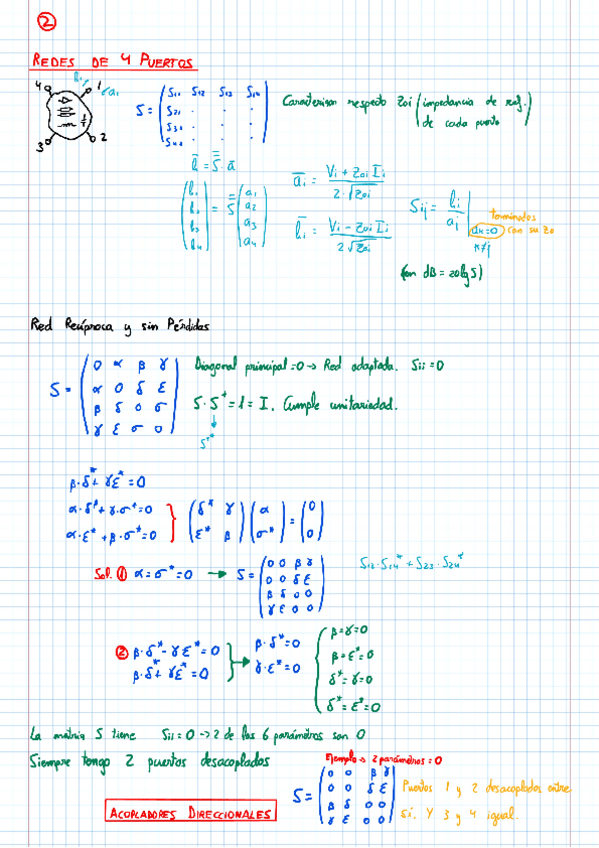 2
REDES DE 4 PUERTOS
4 1 a₁
3 2
S = ( S₁₁ S₁₂ S₁₃ S₁₄
S₂₁ . . .
S₃₁ . . .
S₄₁ . . . )
Caracterizan respecto Zoi (impedancia de ref. de cada puerto)
b̄ = S̿ · ā
( b₁ b₂ b₃ b₄ ) = S̿ ( a₁ a₂ a₃ a₄ )
āᵢ = Vi + Zoi Ii / 2·√Zoi
b̄ᵢ = Vi - Zoi Ii / 2√Zoi
Sij = bi / aj | ak=0 k≠j
terminados con su Zo
(en dB = 20lg S)
Red Recíproca y sin Pérdidas
S = ( 0 α β γ
α 0 δ ε
β δ 0 σ
γ ε σ 0 )
Diagonal principal = 0 → Red adaptada. Sii = 0
S · S⁺ = 1 = I. Cumple unitariedad.
β·δ* + γε* = 0
α·δ* + γ·σ* = 0
α·ε* + β·σ* = 0
( δ* γ
ε* β ) ( α
σ* ) = ( 0
0 )
Sol. ① α = σ* = 0 → S = ( 0 0 β γ
0 0 δ ε
β δ 0 0
γ ε 0 0 )
S₁₃·S₁₄* + S₂₃·S₂₄*
② β·δ* - γε* = 0
β·δ* + γε* = 0
β·δ* = 0
γ·ε* = 0
β = γ = 0
β = ε* = 0
δ* = γ = 0
δ* = ε* = 0
La matriz S tiene Sii = 0 → 2 de los 6 parámetros son 0
Siempre tengo 2 puertos desacoplados
Ejemplo → 2 parámetros = 0
S = ( 0 0 β γ
0 0 δ ε
β δ 0 0
γ ε 0 0 )
Puertos 1 y 2 desacoplados entre
sí. Y 3 y 4 igual.
ACOPLADORES DIRECCIONALES